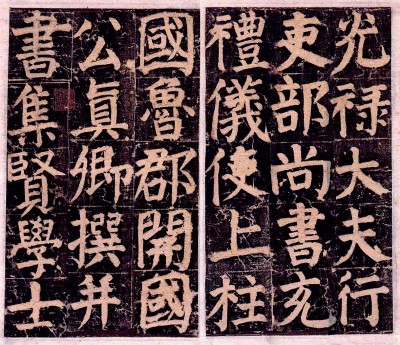 光禄大夫行
吏部尚書充
禮儀使上柱
國魯郡開國
公眞卿撰并
書集賢學士